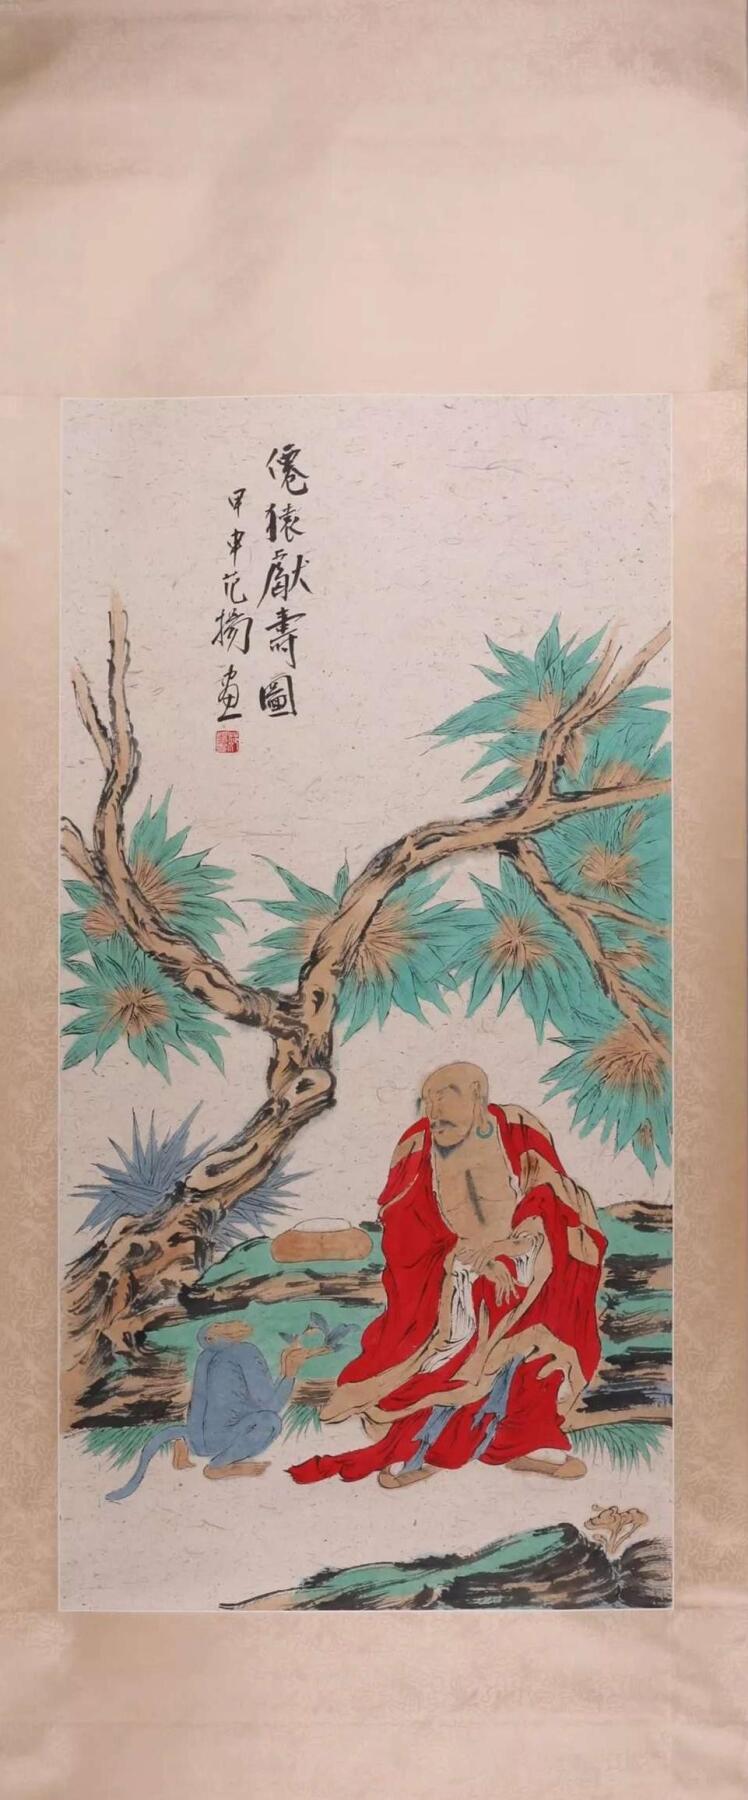 僊猿獻壽圖
甲申范揚畫